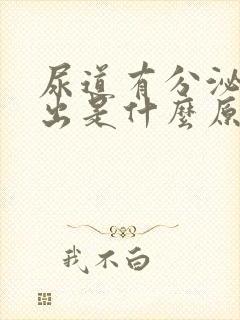 尿道有分泌
出是什麼原
我不白